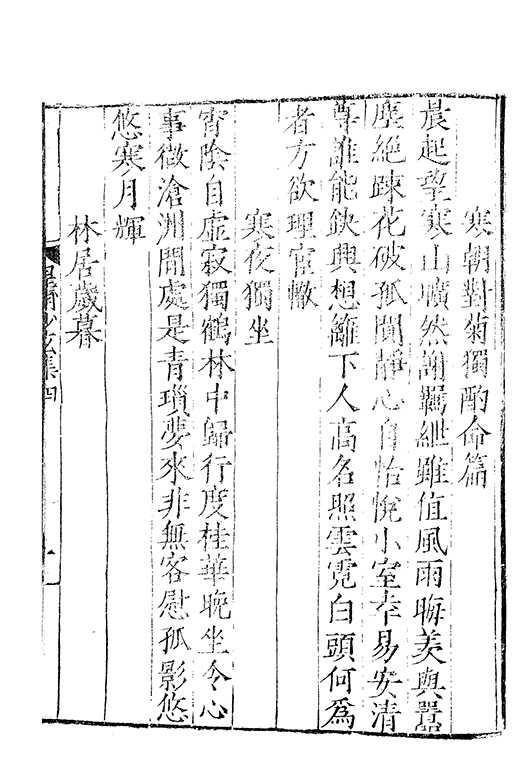 寒朝對菊獨酌命篇
晨起望寒山曠然謝羈紲雖值風雨晦羨與囂
塵絶踈花破孤閴靜心自怡悅小室幸易安清
尊誰能鈌興想籬下人高名照雲霓白頭何爲
者方欲理宦轍
寒夜獨坐
宵陰自虛寂獨鶴林中歸行度桂華晚坐令心
事微滄洲閒處是青瑣夢來非無客慰孤影悠
悠寒月輝
林居歲暮
集四